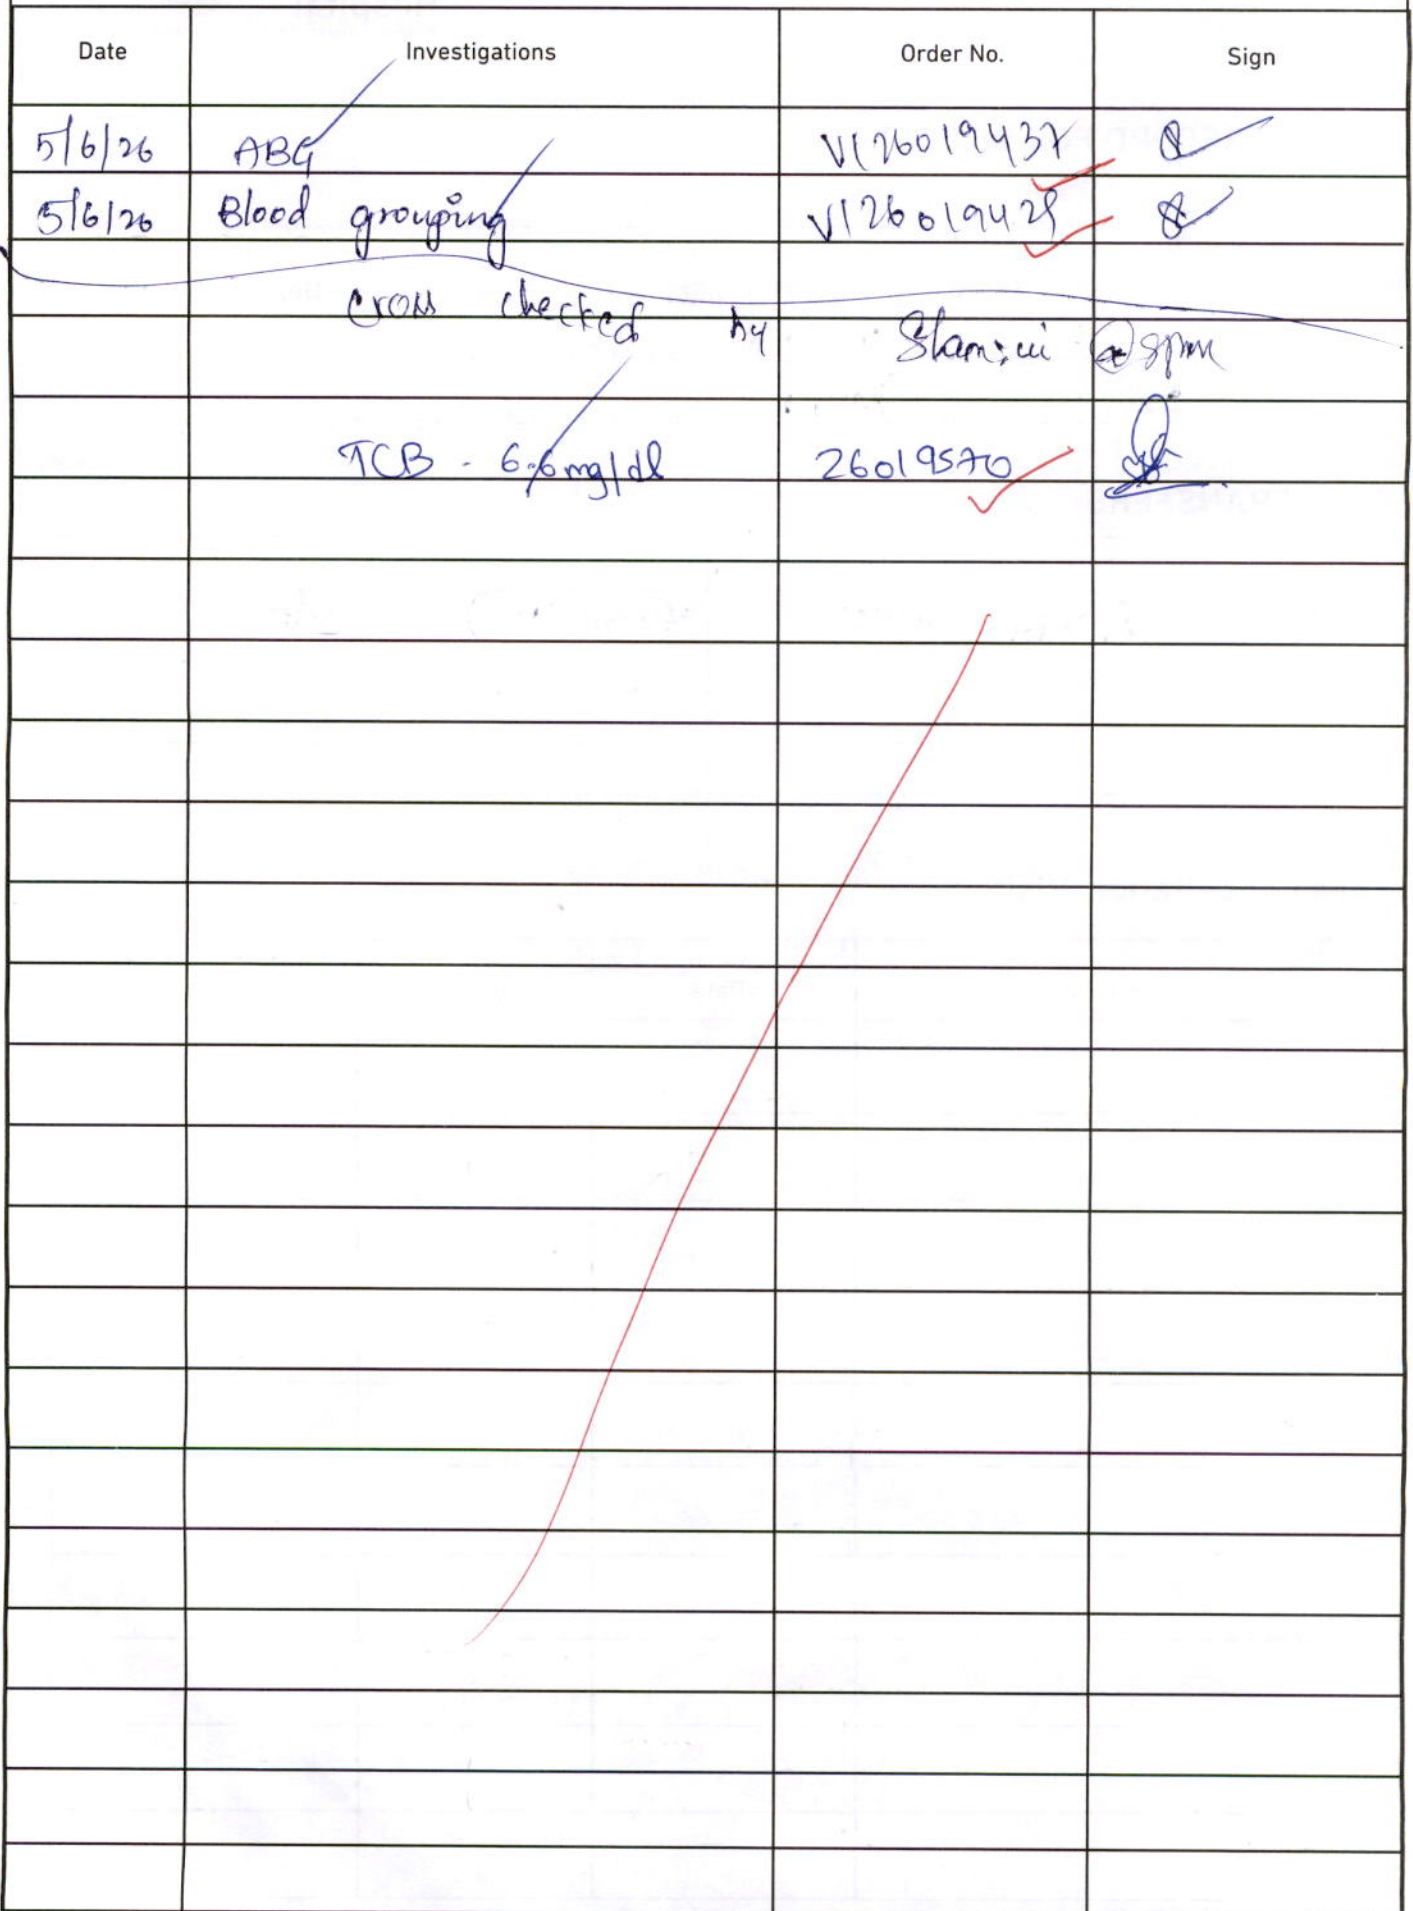 Date Investigations Order No. Sign
5/6/26 ABG VI26019437
5/6/26 Blood grouping VI26019429
Cross checked by @ 8pm
TCB - 6.6mg/dl 26019570